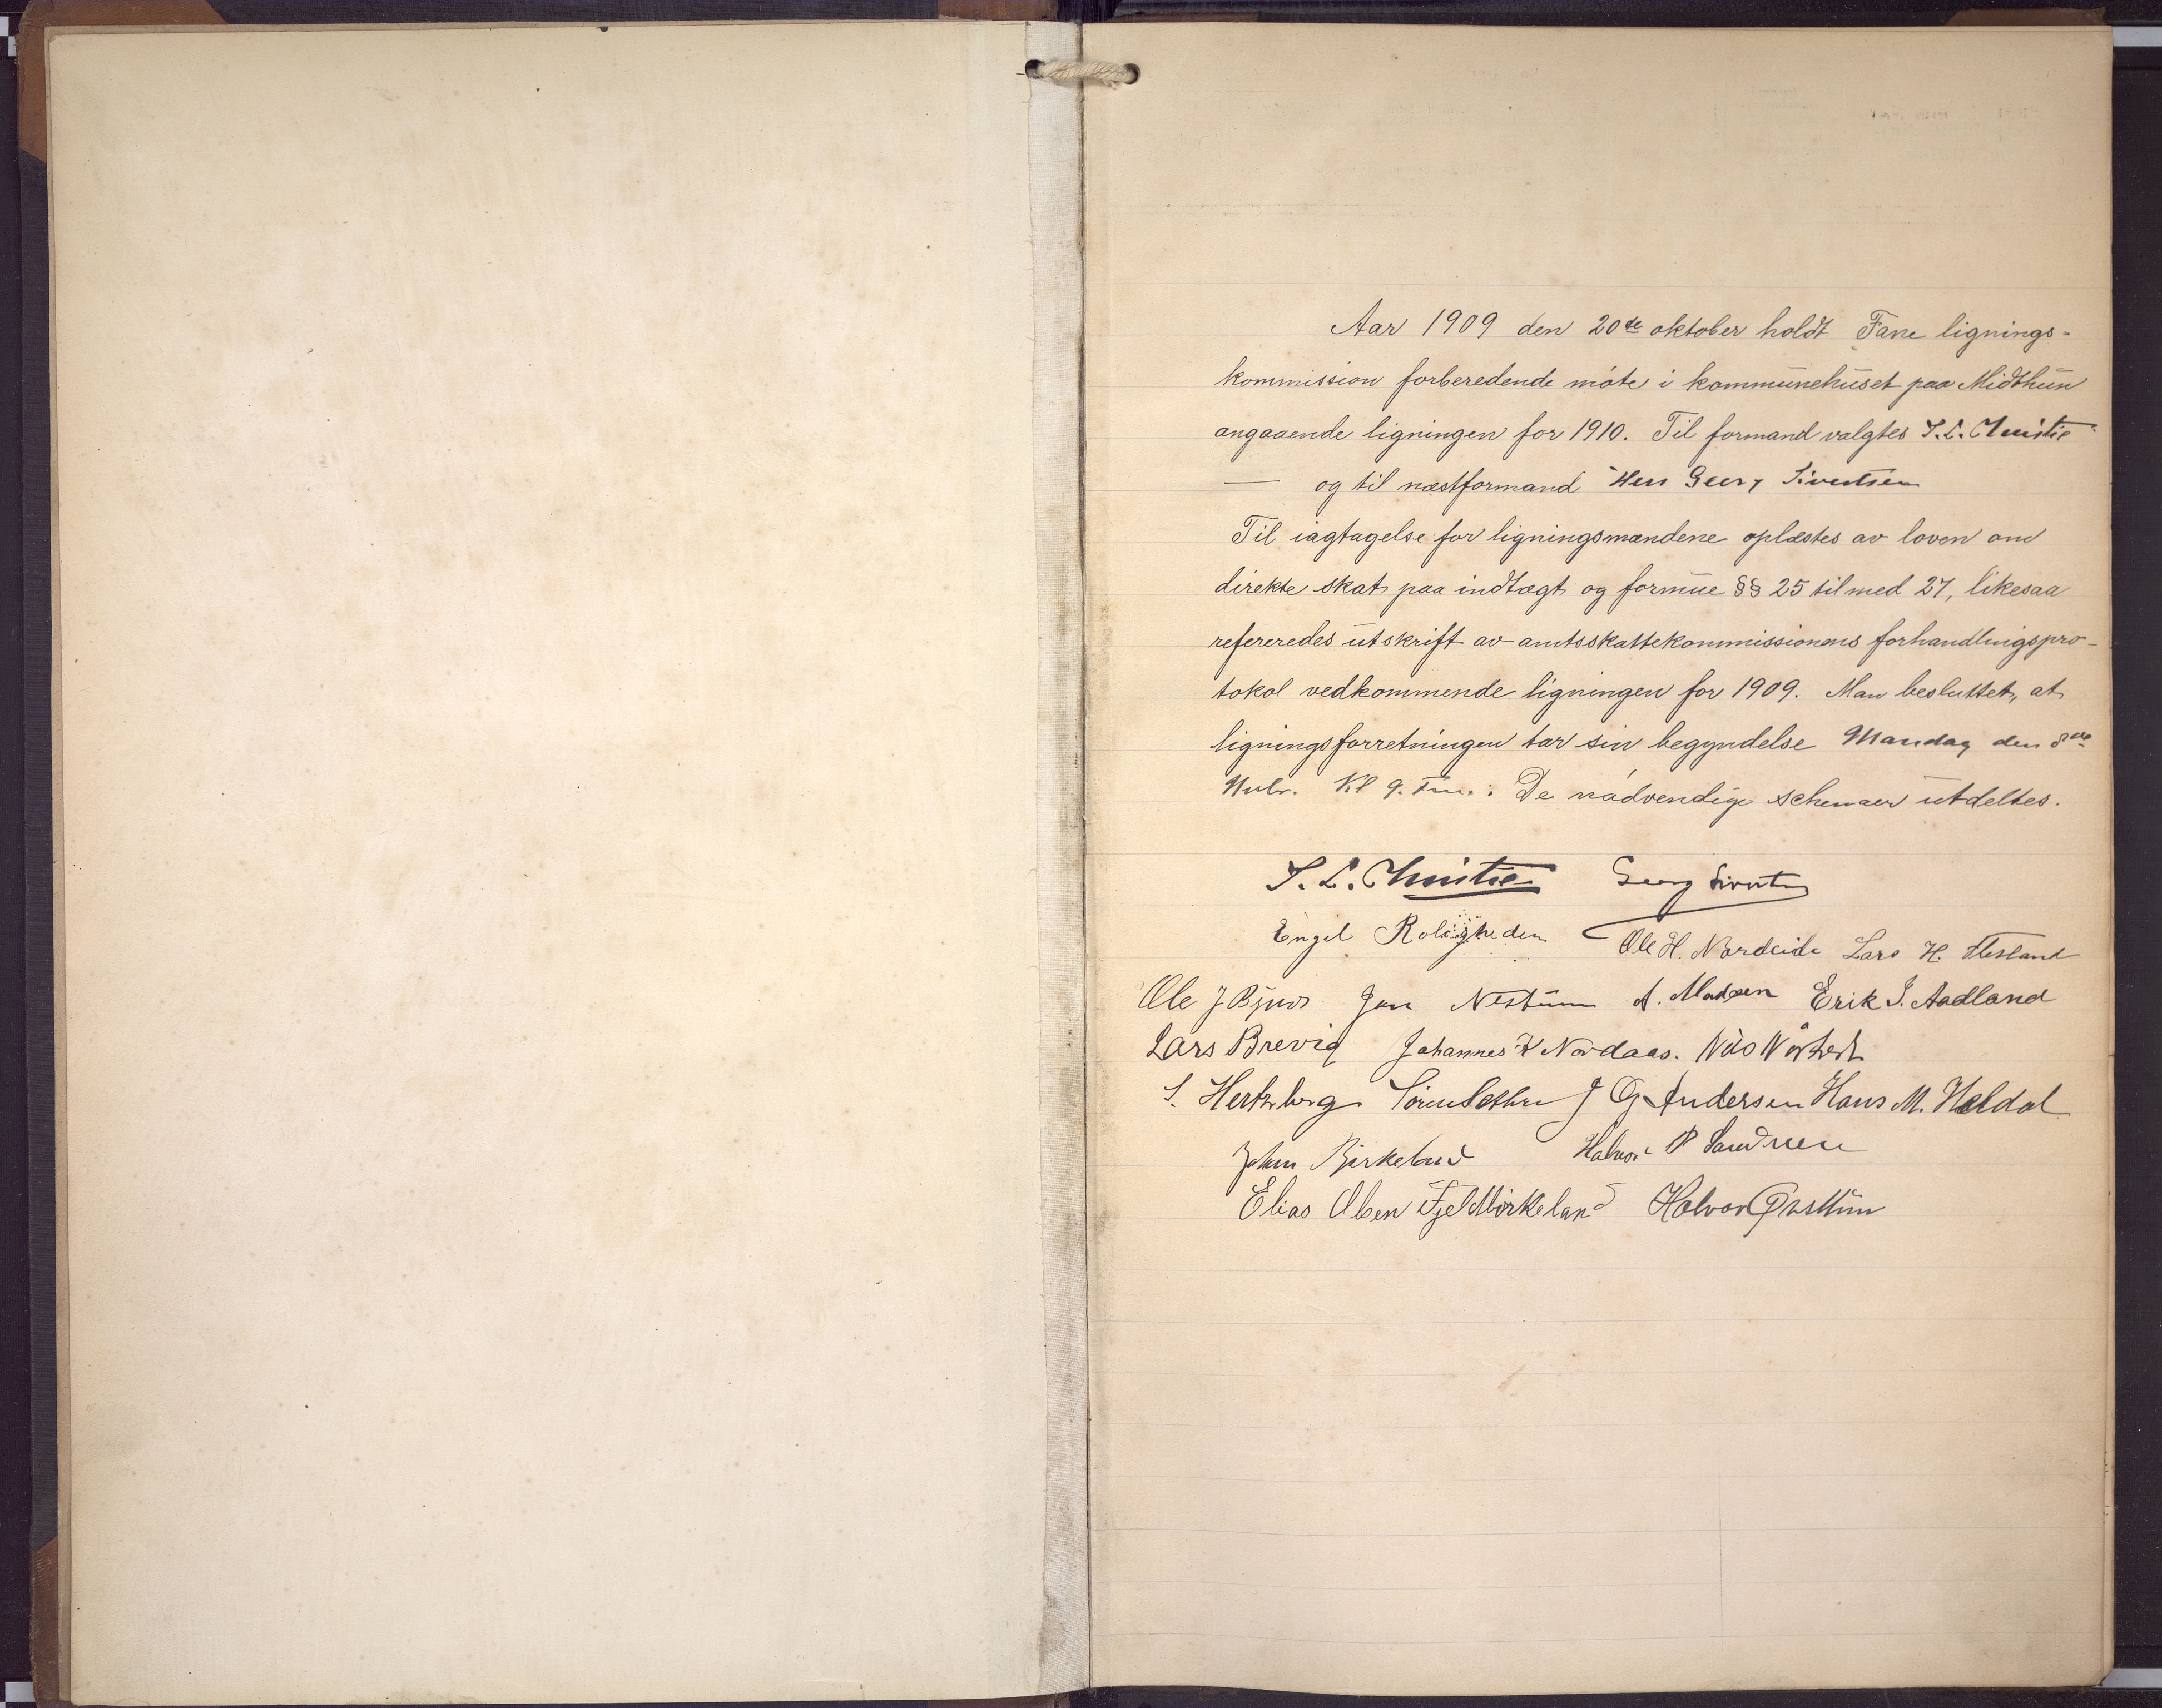 Aar 1909 den 20de oktober holdt Fane lignings-
kommission forberedende møte i kommunehuset paa Midthun
angaaende ligningen for 1910. Til formand valgtes S. L. Christie
— og til næstformand Herr Georg Sivertsen
Til iagtagelse for ligningsmændene oplæstes av loven om
direkte skat paa indtægt og formue §§ 25 til med 27, likesaa
refereredes utskrift av amtsskattekommissionens forhandlingspro-
tokol vedkommende ligningen for 1909. Man besluttet, at
ligningsforretningen tar sin begyndelse Mandag den 8de
Novbr. Kl 9. Fm. De nødvendige schemaer utdeltes.
S. L. Christie Georg Sivertsen
Engel Roligheden Ole H. Nordeide Lars H. Flesland
Ole J Bjuro Jan Nestun A. Madsen Erik J. Aadland
Lars Brevig Johannes K Nordaas. Nils
S. Hertzberg J G Andersen Hans M. Heldal
Johan Birkeland Halvor P Sandven
Elias Olsen Fjeldbirkeland Halvor Østtun